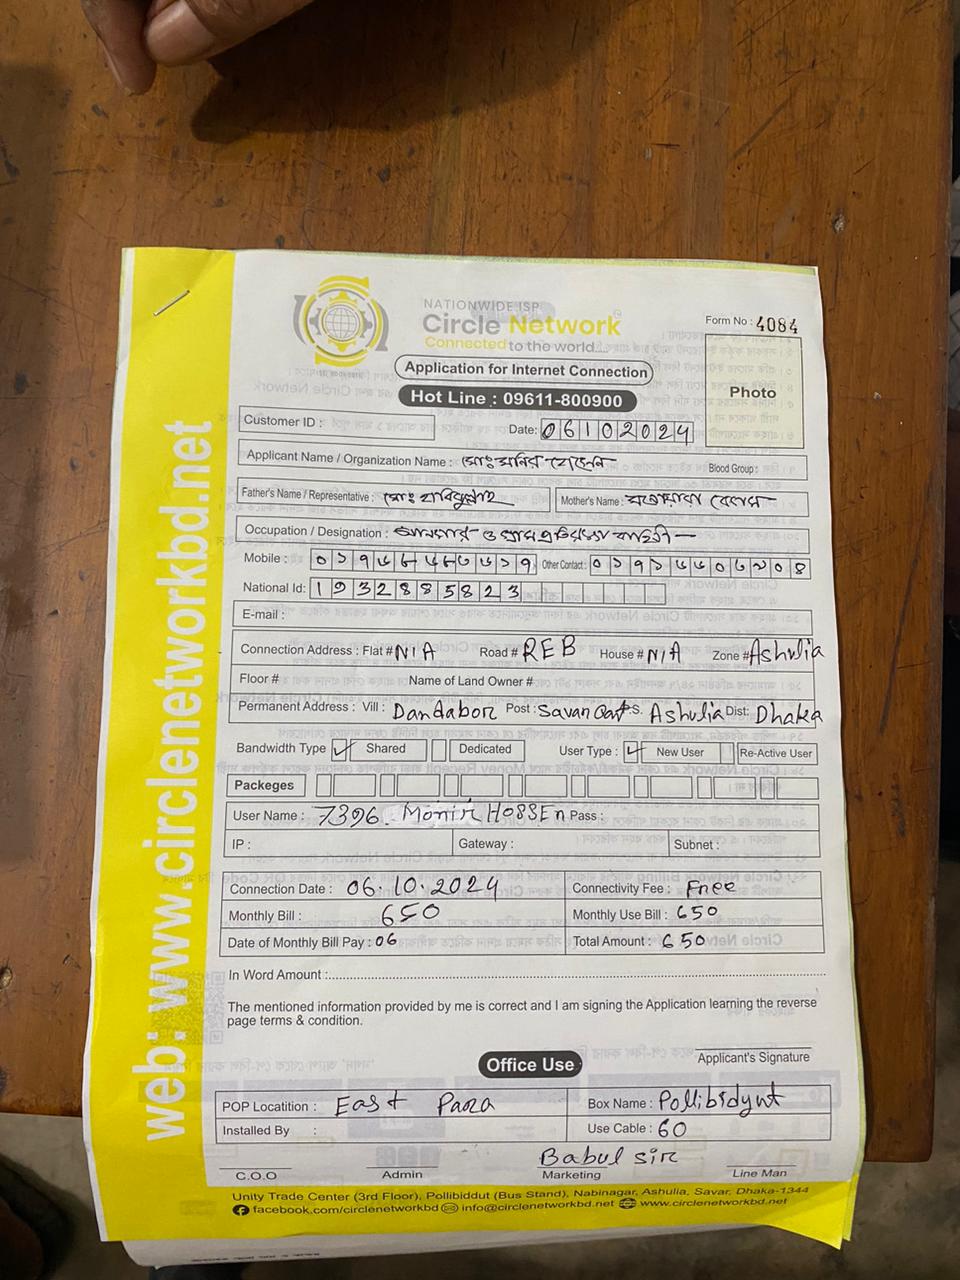 NATIONWIDE ISP
Circle Network
Connected to the world....
Form No : 4084
Application for Internet Connection
Hot Line : 09611-800900
Photo
Customer ID :
Date: 06102024
Applicant Name / Organization Name : মোঃ মনির হোসেন
Blood Group :
Father's Name / Representative : মোঃ হাবিবুল্লাহ
Mother's Name : বেগম
Occupation / Designation : আনসার ও গ্রাম প্রতিরক্ষা বাহিনী
Mobile :
Other Contact :
National Id: 1932885823
E-mail :
Connection Address : Flat # N/A Road # REB House # N/A Zone # Ashulia
Floor # Name of Land Owner #
Permanent Address : Vill : Dandabor Post : Savan Cant P.S. Ashulia Dist: Dhaka
Bandwidth Type Shared Dedicated User Type : New User Re-Active User
Packeges
User Name : 7396 Monir HOSSEn Pass :
IP : Gateway : Subnet :
Connection Date : 06.10.2024 Connectivity Fee : Free
Monthly Bill : 650 Monthly Use Bill : 650
Date of Monthly Bill Pay : 06 Total Amount : 650
In Word Amount :
The mentioned information provided by me is correct and I am signing the Application learning the reverse
page terms & condition.
Applicant's Signature
Office Use
POP Locatition : East Para Box Name : Pollibidyut
Installed By : Use Cable : 60
Babul sir
C.O.O Admin Marketing Line Man
Unity Trade Center (3rd Floor), Pollibiddut (Bus Stand), Nabinagar, Ashulia, Savar, Dhaka-1344
facebook.com/circlenetworkbd info@circlenetworkbd.net www.circlenetworkbd.net
web: www.circlenetworkbd.net